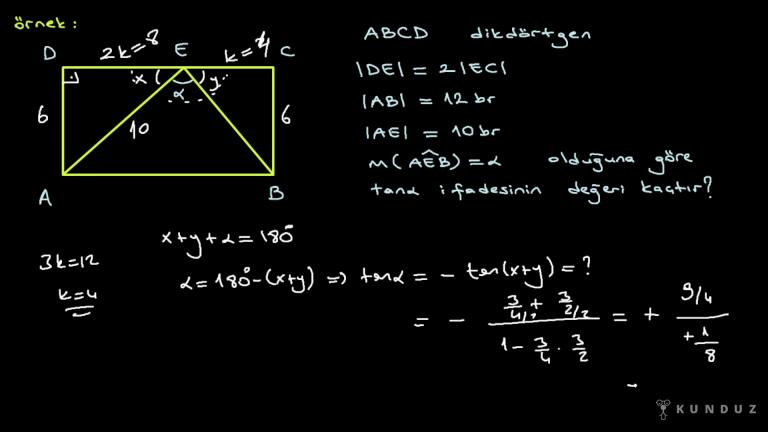 örnek:
D 2k=8 E k=4 C
x α y
6 10 6
A B
ABCD dikdörtgen
|DE| = 2|EC|
|AB| = 12 br
|AE| = 10 br
m(AÊB) = α olduğuna göre
tanα ifadesinin değeri kaçtır?
3k=12
k=4
x+y+α=180°
α=180°-(x+y) ⇒ tanα = - tan(x+y) = ?
= - (3/4 + 3/2) / (1 - 3/4 · 3/2) = + (9/4) / (+1/8)
-
KUNDUZ